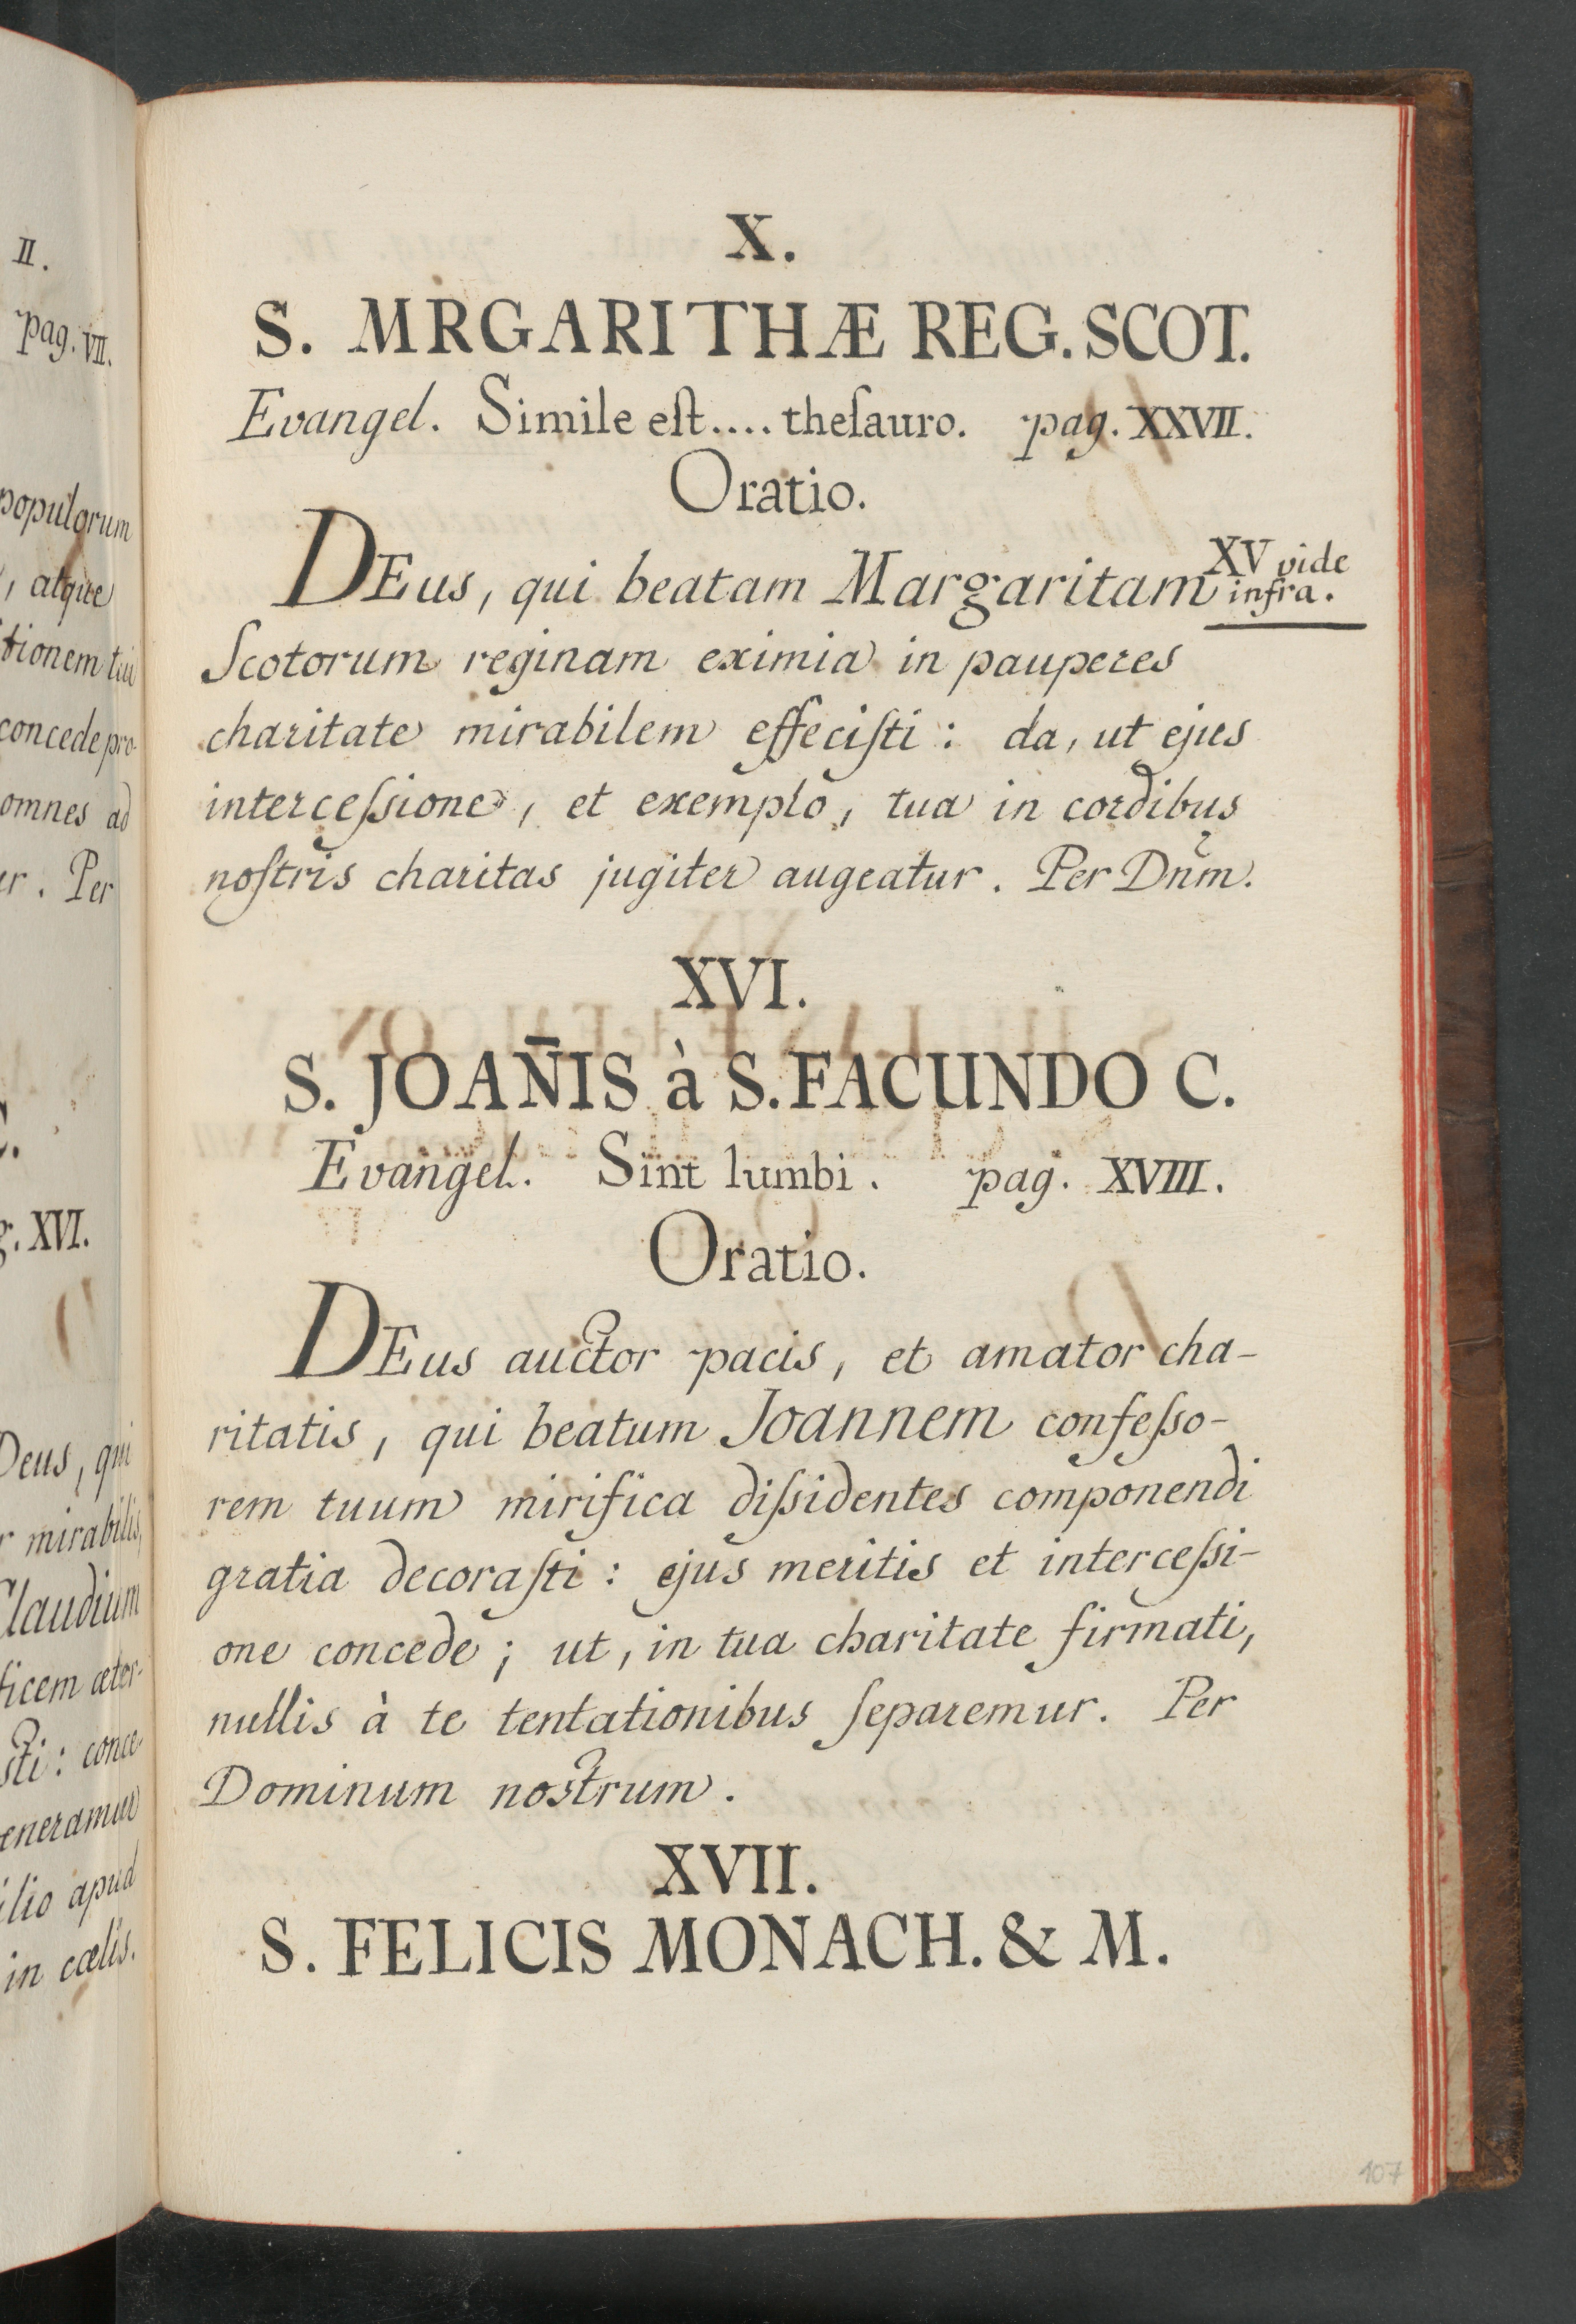 II.
pag. VII.
populorum
, atque
tionem tui
concede pro-
omnes ad
r. Per
C.
g. XVI.
Deus, qui
r mirabilis,
Claudium
ficem æter-
sti: conce-
eneramur
ilio apud
in cœlis.
X.
S. MRGARITHÆ REG. SCOT.
Evangel. Simile eſt.... theſauro. pag. XXVII.
Oratio.
DEus, qui beatam Margaritam
XV vide
infra.
Scotorum reginam eximia in pauperes
charitate mirabilem effeciſti : da, ut ejus
interceſsione, et exemplo, tua in cordibus
noſtris charitas jugiter augeatur. Per Dnm̄.
XVI.
S. JOAN̄IS à S. FACUNDO C.
Evangel. Sint lumbi. pag. XVIII.
Oratio.
DEus auctor pacis, et amator cha-
ritatis, qui beatum Joannem confeſso-
rem tuum mirifica diſsidentes componendi
gratia decoraſti : ejus meritis et interceſsi-
one concede ; ut, in tua charitate firmati,
nullis à te tentationibus ſeparemur. Per
Dominum nostrum.
XVII.
S. FELICIS MONACH. & M.
107